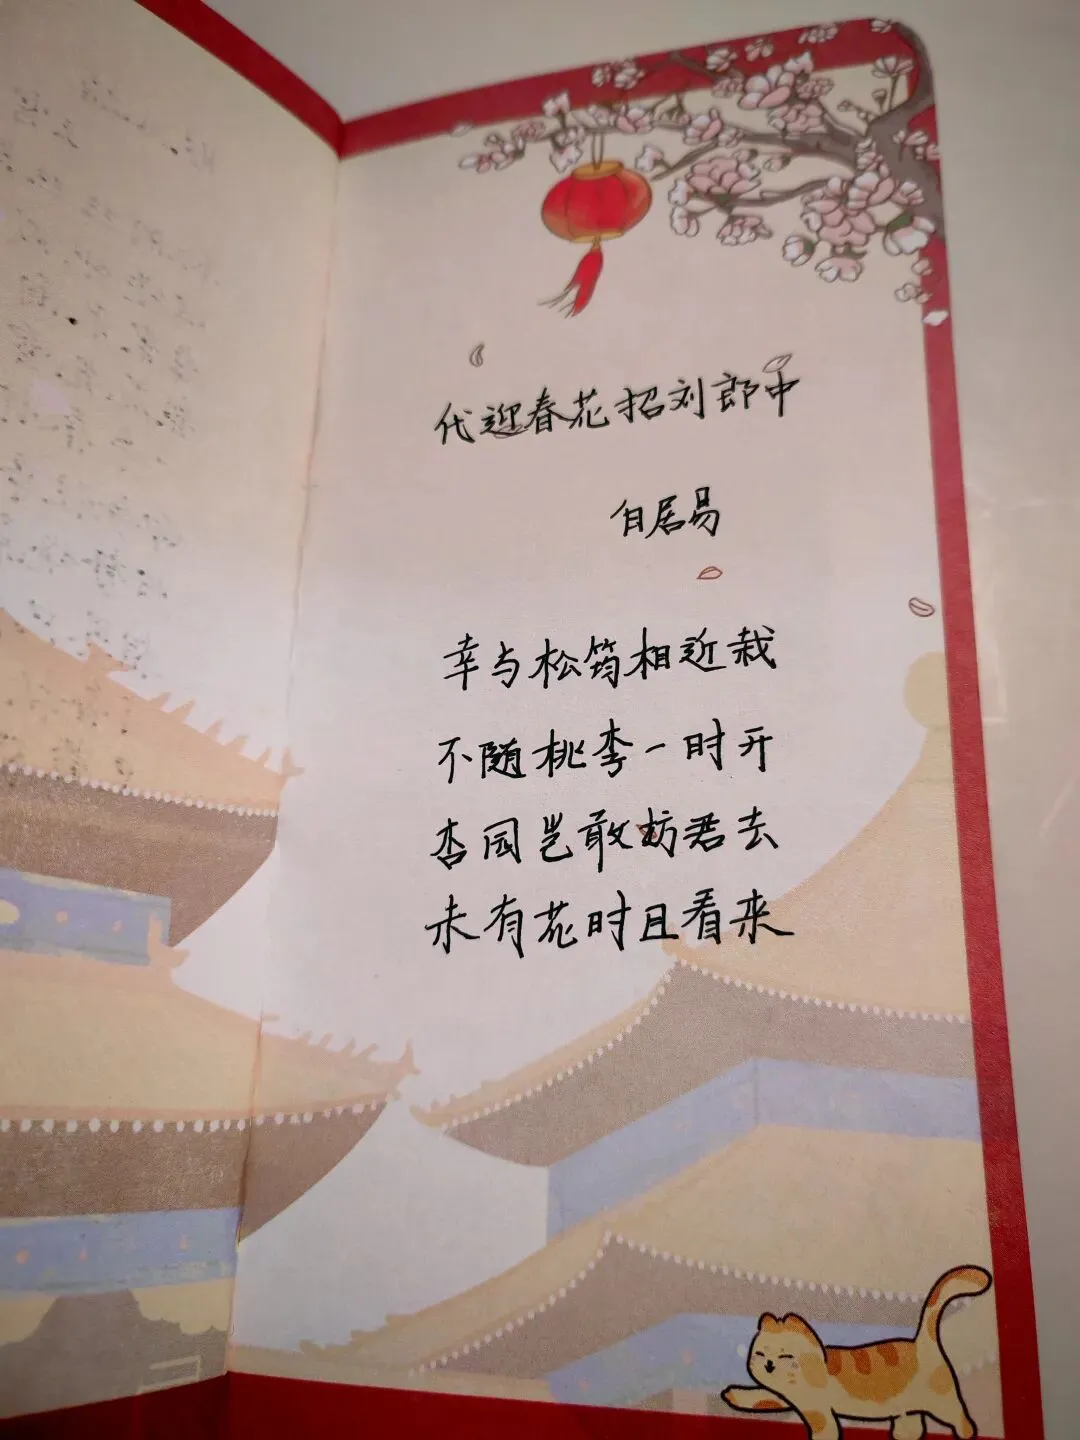 代迎春花招刘郎中
白居易
幸与松筠相近栽
不随桃李一时开
杏园岂敢妨君去
未有花时且看来